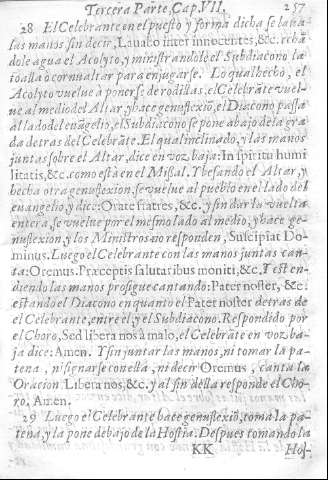 Tercera Parte, Cap. VII. 257
28 El Celebrante en el puesto y forma dicha se laba
las manos, sin decir, Lauabo inter innocentes, &c. echã
dole agua el Acolyto, y ministrandole el Subdiacono la
toalla o cornualtar para enjugarse. Lo qual hecho, el
Acolyto vuelue à ponerse de rodillas, el Celebrãte vuel-
ue al medio del Altar, y hace genuflexiõ, el Diacono passa
àl lado del euãgelio, el Subdiacono se pone abajo de la gra
da detras del Celebrãte. El qual inclinado, y las manos
juntas sobre el Altar, dice en voz baja: In spiritu humi
litatis, &c. como està en el Missal. Y besando el Altar, y
hecha otra genuflexion, se vuelue al pueblo en el lado del
euangelio, y dice: Orate fratres, &c. y sin dar la vuelta
entera, se vuelue por el mesmo lado al medio, y hace ge-
nuflexion, y los Ministros no responden, Suscipiat Do-
minus. Luego el Celebrante con las manos juntas can-
ta: Oremus. Præceptis salutaribus moniti, &c. Y esten-
diendo las manos prosigue cantando: Pater noster, &c:
estando el Diacono en quanto el Pater noster detras de
el Celebrante, entre el, y el Subdiacono. Respondido por
el Choro, Sed libera nos à malo, el Celebrãte en voz ba-
ja dice: Amen. Y sin juntar las manos, ni tomar la pa-
tena, ni signarse con ella, ni decir Oremus, canta la
Oracion Libera nos, &c. y al fin della responde el Cho-
ro, Amen.
29 Luego el Celebrante hace genuflexiõ, toma la pa-
tena, y la pone debajo de la Hostia. Despues tomando la
KK Hos-